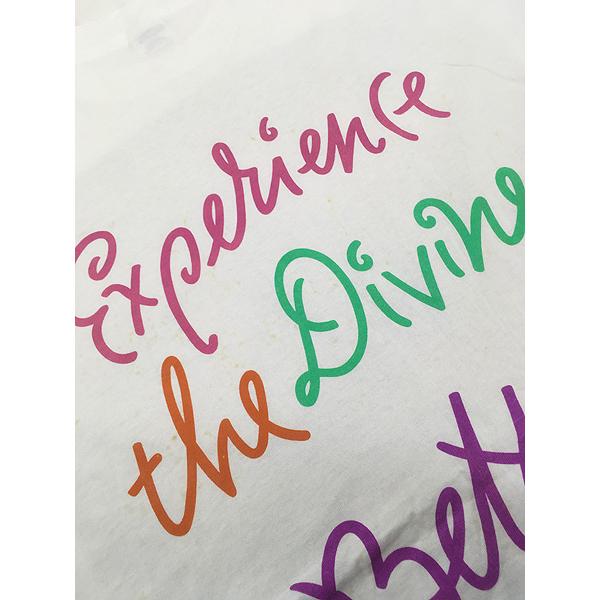 Experience
the Divine
Bett